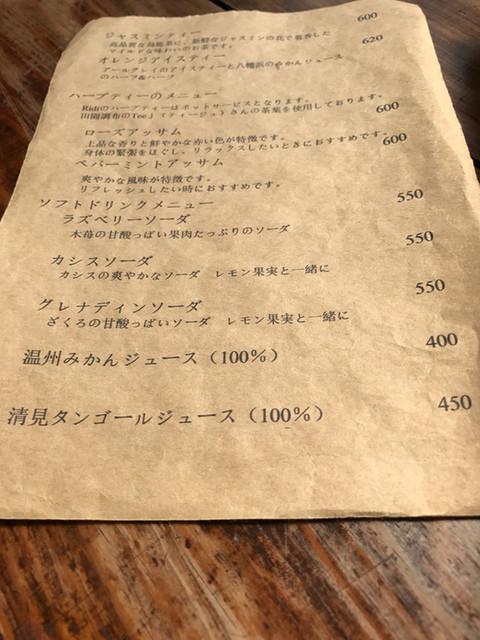 ジャスミンティー 600
高品質な烏龍茶に、新鮮なジャスミンの花で着香した
マイルドな味わいのお茶です。
オレンジアイスティー 620
アールグレイのアイスティーと八幡浜のみかんジュース
のハーフ&ハーフ
ハーブティーのメニュー
Ridiのハーブティーはポットサービスとなります。
田園調布のTeej(ティージュ)さんの茶葉を使用しております。
ローズアッサム 600
上品な香りと鮮やかな赤い色が特徴です。
身体の緊張をほぐし、リラックスしたいときにおすすめです。
ペパーミントアッサム 600
爽やかな風味が特徴です。
リフレッシュしたい時におすすめです。
ソフトドリンクメニュー
ラズベリーソーダ 550
木苺の甘酸っぱい果肉たっぷりのソーダ
カシスソーダ 550
カシスの爽やかなソーダ レモン果実と一緒に
グレナディンソーダ 550
ざくろの甘酸っぱいソーダ レモン果実と一緒に
温州みかんジュース(100%) 400
清見タンゴールジュース(100%) 450